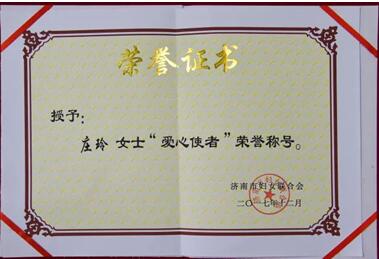 荣誉证书
授予:
庄玲 女士“爱心使者”荣誉称号。
济南市妇女联合会
二〇一七年十二月